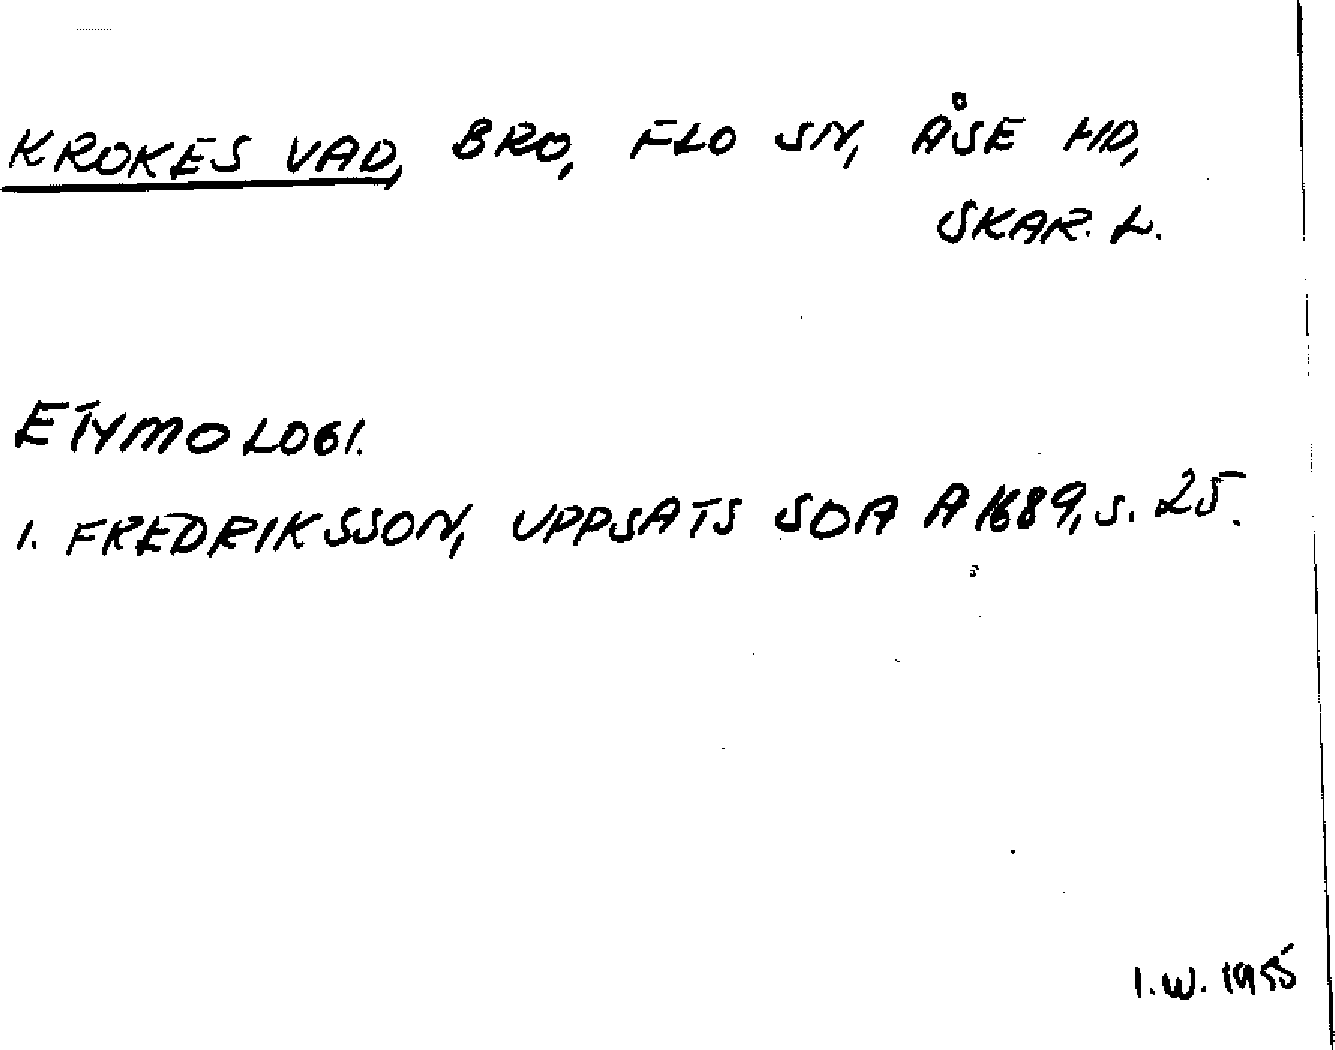 KROKES VAD, BRO, FLO SN, ÅSE HD,
SKAR. L.
ETYMOLOGI.
1. FREDRIKSSON, UPPSATS SOA A 1689, S. 25.
I.W. 1955